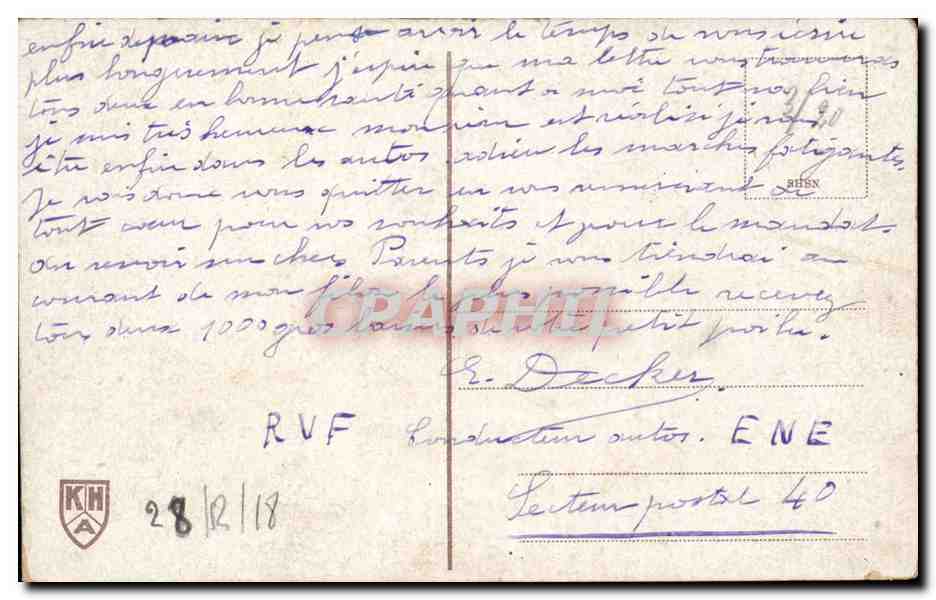 enfin demain je pense avoir le temps de vous écrire
plus longuement j'espère que ma lettre vous trouveras
tous deux en bonne santé quant a moi tout va bien
je suis très heureux mon rêve est réalisé je vais
être enfin dans les autos. adieu les marches fatigantes.
Je vais donc vous quitter en vos remerciant de
tout cœur pour vos souhaits et pour le mandat.
au revoir mes chers Parents je vous tiendrai au
courant de mon le plus possible recevez
tous deux 1000 gros baisers de votre petit poilu.
E. Decker.
RVF Conducteur autos. ENE
Secteur postal 40
3/20
RHBN
KHA
28/12/18
CPAPHIL